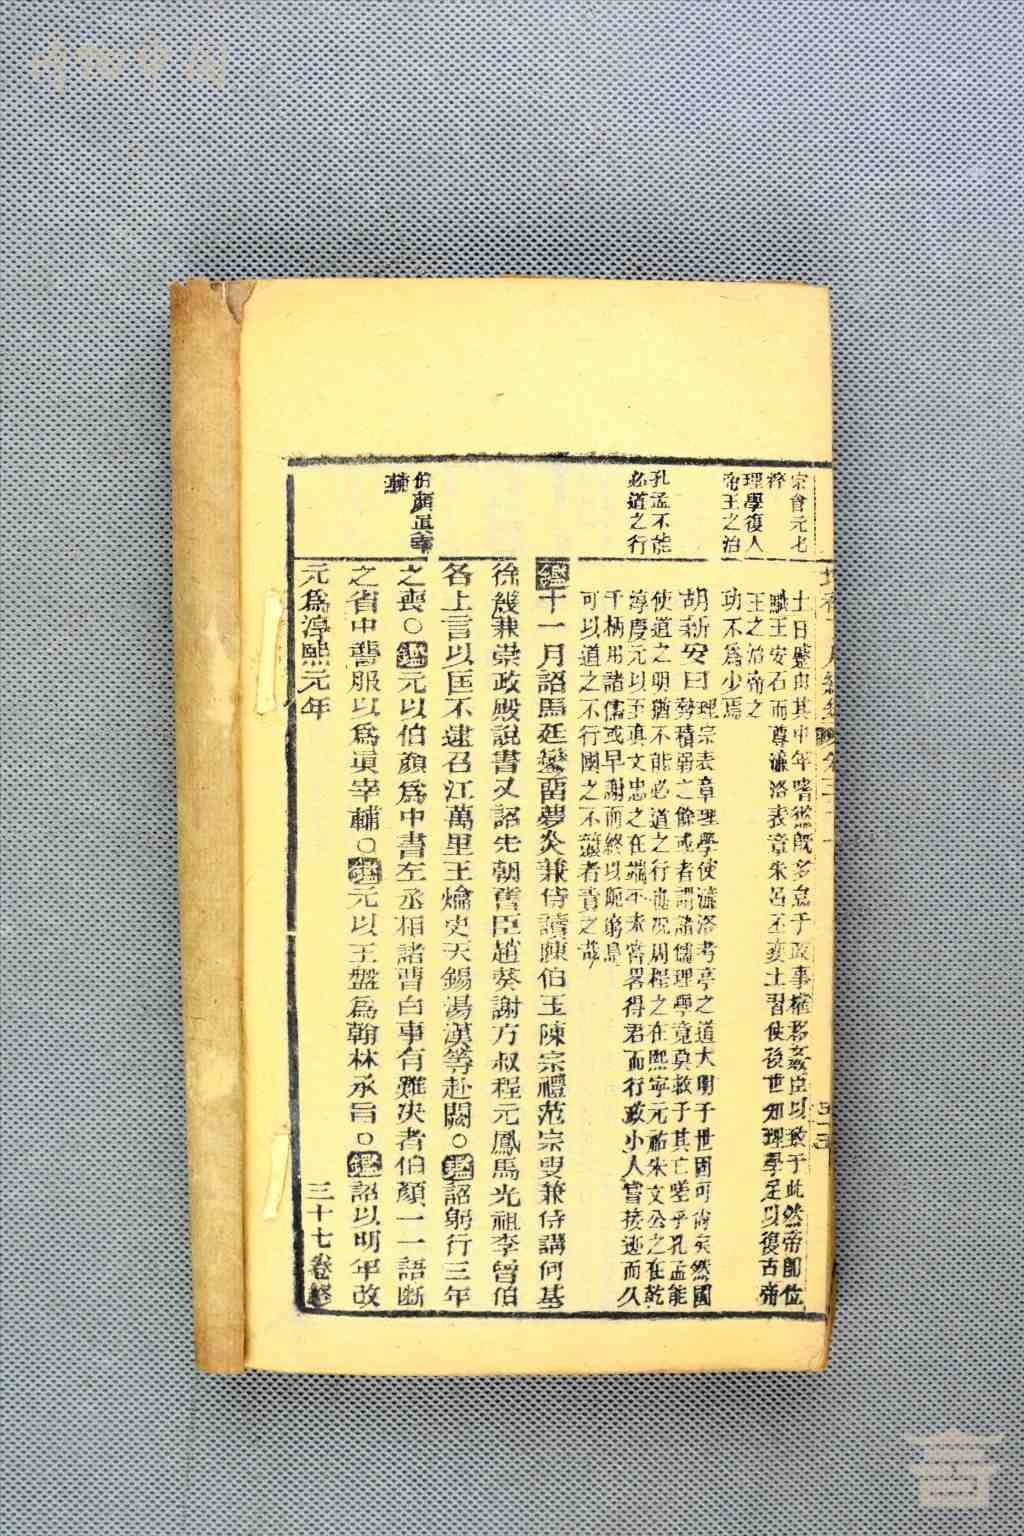 宗會元七
理學復人
帝王之治
孔孟不能
必道之行
伯顏眞宰
輔
士日蠹由其中年嗜慾旣多怠于政事權移姦臣以致于此然帝卽位
黜王安石而尊濂洛表章朱呂丕變士習使後世知理學足以復古帝
王之治帝之
功不爲少焉
胡新安曰理宗表章理學使濂洛考亭之道大明于世固可尚矣然國
勢積弱之餘或者謂諸儒理學竟莫救于其亡嗟乎孔孟能
使道之明猶不能必道之行也况周程之在熙寧元祐朱文公之在乾
淳慶元以至真文忠之在端平未嘗畧得君而行政小人嘗接迹而久
千柄用諸儒或早謝而終以貶窮是
可以道之不行國之不競者責之哉
鑑十一月詔馬廷鸞留夢炎兼侍讀陳伯玉陳宗禮范宗叟兼侍講何基
徐幾兼崇政殿說書又詔先朝舊臣趙葵謝方叔程元鳳馬光祖李曾伯
各上言以匡不逮召江萬里王爚史天錫湯漢等赴闕○鑑詔躬行三年
之喪○鑑元以伯顏爲中書左丞相諸曹白事有難决者伯顏一一語斷
之省中讋服以爲眞宰輔○鑑元以王盤爲翰林承旨○鑑詔以明年改
元爲淳熙元年
三十七卷終